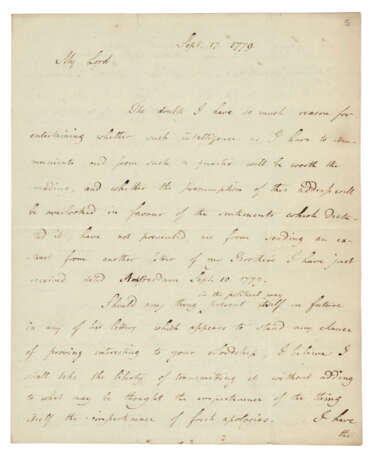 Sept. 17 1779
My Lord
The doubt I have so much reason for
entertaining whether such intelligence as I have to com-
municate and from such a quarter will be worth the
reading, and whether the presumption of this address will
be overlooked in favour of the sentiments which dicta-
ted it, have not prevented me from sending an ex-
tract from another letter of my Brother's I have just
received dated Sept. 10. 1779.
in the political way
Should any thing present itself in future
in any of his letters which appears to stand any chance
of proving interesting to your Lordship, I believe I
shall take the liberty of transmitting it without adding
to what may be thought the impertinence of the thing
itself the impertinence of fresh apologies. I have
the